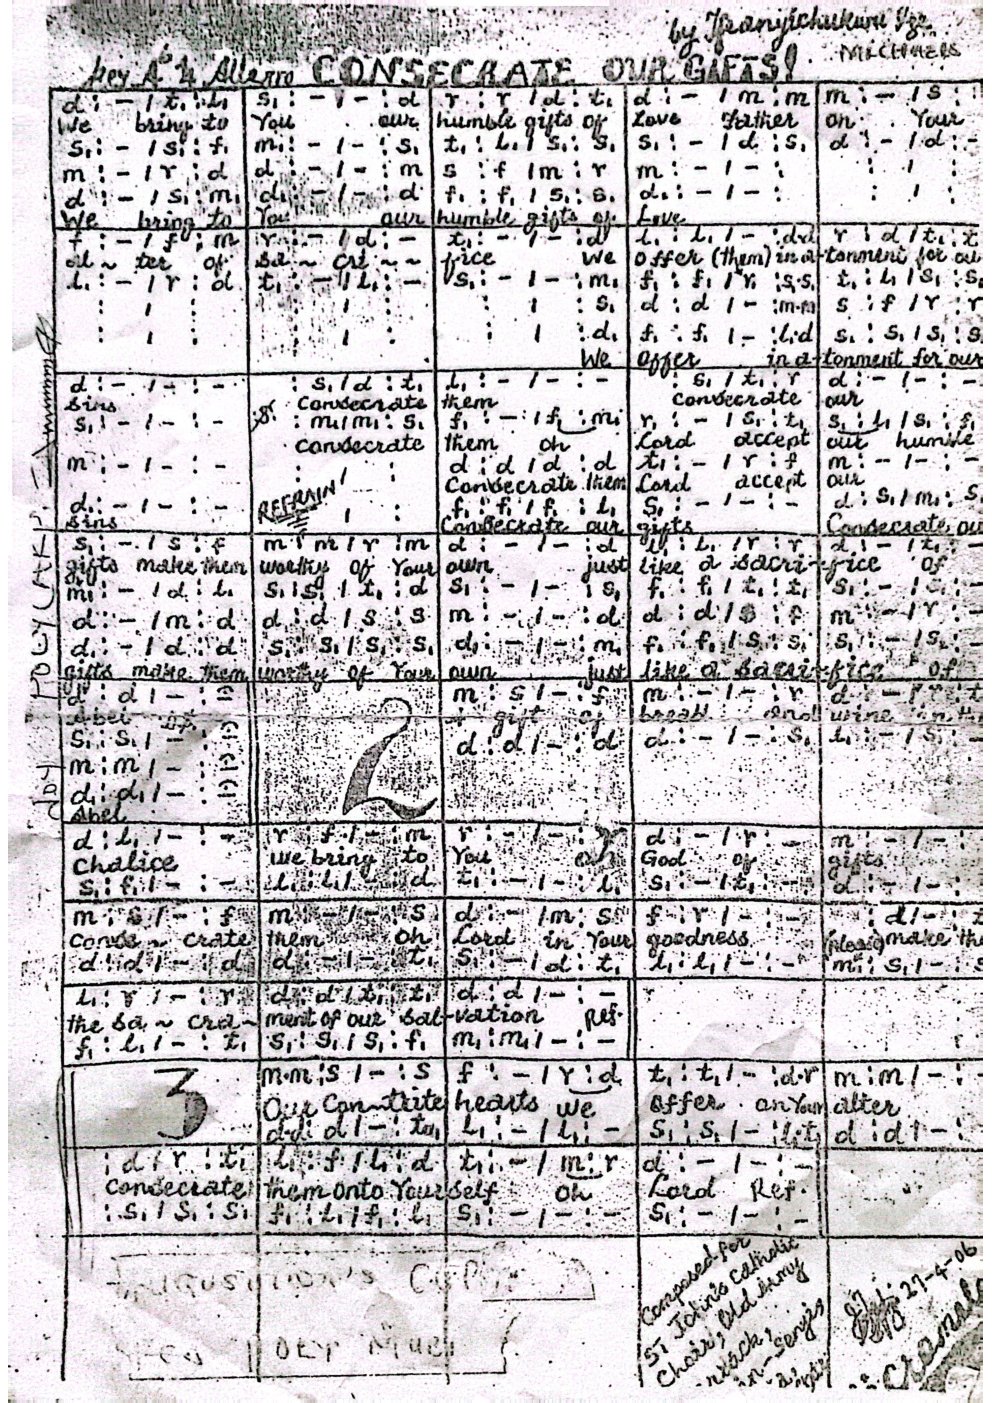 by Ifeanyichukwu Eze
MICHAELS
Key A♭ 4/4 Allegro CONSECRATE OUR GIFTS!
d : - / t₁ : l₁ | s₁ : - / - : d | r : r / d : t₁ | d : - / m : m | m : - / s :
We bring to | You our | humble gifts of | Love Father | on Your
s₁ : - / s₁ : f₁ | m₁ : - / - : s₁ | t₁ : l₁ / s₁ : s₁ | s₁ : - / d : s₁ | d : - / d : -
m : - / r : d | d : - / - : m | s : f / m : r | m : - / - : | : / :
d : - / s₁ : m₁ | d₁ : - / - : d | f₁ : f₁ / s₁ : s₁ | d₁ : - / - : | : / :
We bring to | You our | humble gifts of | Love
f : - / f : m | r : - / d : - | t₁ : - / - : d | l₁ : l₁ / - : d.d | r : d / t₁ : t
al ~ ter of | sa ~ cri ~ ~ | fice We | offer (them) in a- | tonment for ou
l₁ : - / r : d | t₁ : - / l₁ : - | s₁ : - / - : m₁ | f₁ : f₁ / r₁ : s₁.s₁ | t₁ : l₁ / s₁ : s₁
: / : | : / : | : / : s₁ | d : d / - : m.m | s : f / r : r
: / : | : / : | : / : d₁ | f₁ : f₁ / - : l₁.d | s₁ : s₁ / s₁ : s
We | offer in a- | tonment for our
d : - / - : - | : s₁ / d : t₁ | l₁ : - / - : - | : s₁ / t₁ : r | d : - / - : -
sins | Consecrate | them | consecrate | our
s₁ : - / - : - | S. : m₁ / m₁ : s₁ | f₁ : - / f₁ : m₁ | r₁ : - / s₁ : t₁ | s₁ : l₁ / s₁ : f₁
consecrate | them oh | Lord accept | our humble
m : - / - : - | : / : | d : d / d : d | t₁ : - / r : f | m : - / - : -
Consecrate them | Lord accept | our
d₁ : - / - : - | REFRAIN / : | f₁ : f₁ / f₁ : l₁ | s₁ : - / - : - | d : s₁ / m₁ : s
sins | Consecrate our | gifts | Consecrate ou
s₁ : - / s : f | m : m / r : m | d : - / - : d | l₁ : l₁ / r : r | d : - / t₁ : -
gifts make them | worthy of Your | own just | like a sacri- | fice of
m₁ : - / d : l₁ | s₁ : s₁ / t₁ : d | s₁ : - / - : s₁ | f₁ : f₁ / t₁ : t₁ | s₁ : - / s₁ : -
d : - / m : d | d : d / s : s | m : - / - : d | d : d / s : f | m : - / r : -
d₁ : - / d : d | s₁ : s₁ / s₁ : s₁ | d₁ : - / - : m₁ | f₁ : f₁ / s₁ : s₁ | s₁ : - / s₁ : -
gifts make them | worthy of Your | own just | like a sacri- | fice of
d : d / - : (-) | 2 | m : s / - : f | m : - / - : r | d : - / r : t
Abel | gift of | bread and | wine in th
s₁ : s₁ / - : (-) | d : d / - : d | d : - / - : s₁ | l₁ : - / s₁ : -
m : m / - : (-)
d₁ : d₁ / - : (-)
Abel
d : l₁ / - : - | r : f / - : m | r : - / - : r | d : - / r : - | m : - / - :
Chalice | we bring to | You oh | God of | gifts
s₁ : f₁ / - : - | l₁ : l₁ / - : d | t₁ : - / - : l₁ | s₁ : - / t₁ : - | d : - / - :
m : s / - : f | m : - / - : s | d : - / m : s | f : r / - : - | : d / - : t
Conse ~ crate | them oh | Lord in Your | goodness | (please) make the
d : d / - : d | d : - / - : t₁ | s₁ : - / d : t₁ | l₁ : l₁ / - : - | m₁ : s₁ / - : s
l₁ : r / - : r | d : d / t₁ : t₁ | d : d / - : -
the sa ~ cra~ | ment of our sal- | vation Ref.
f₁ : l₁ / - : t₁ | s₁ : s₁ / s₁ : f₁ | m₁ : m₁ / - : -
3 | m.m : s / - : s | f : - / r : d | t₁ : t₁ / - : d.r | m : m / - : -
Our Con~trite | hearts we | offer on Your | alter
d.d : d / - : t₁ | l₁ : - / l₁ : - | s₁ : s₁ / - : l₁.t₁ | d : d / - :
: d / r : t₁ | l₁ : f / l₁ : d | t₁ : - / m : r | d : - / - : -
Consecrate | them onto Your | self oh | Lord Ref.
: s₁ / s₁ : s₁ | f₁ : l₁ / f₁ : l₁ | s₁ : - / - : - | s₁ : - / - : -
Composed for
ST John's Catholic
Choir, Old Army
27-4-06
POLYCARP